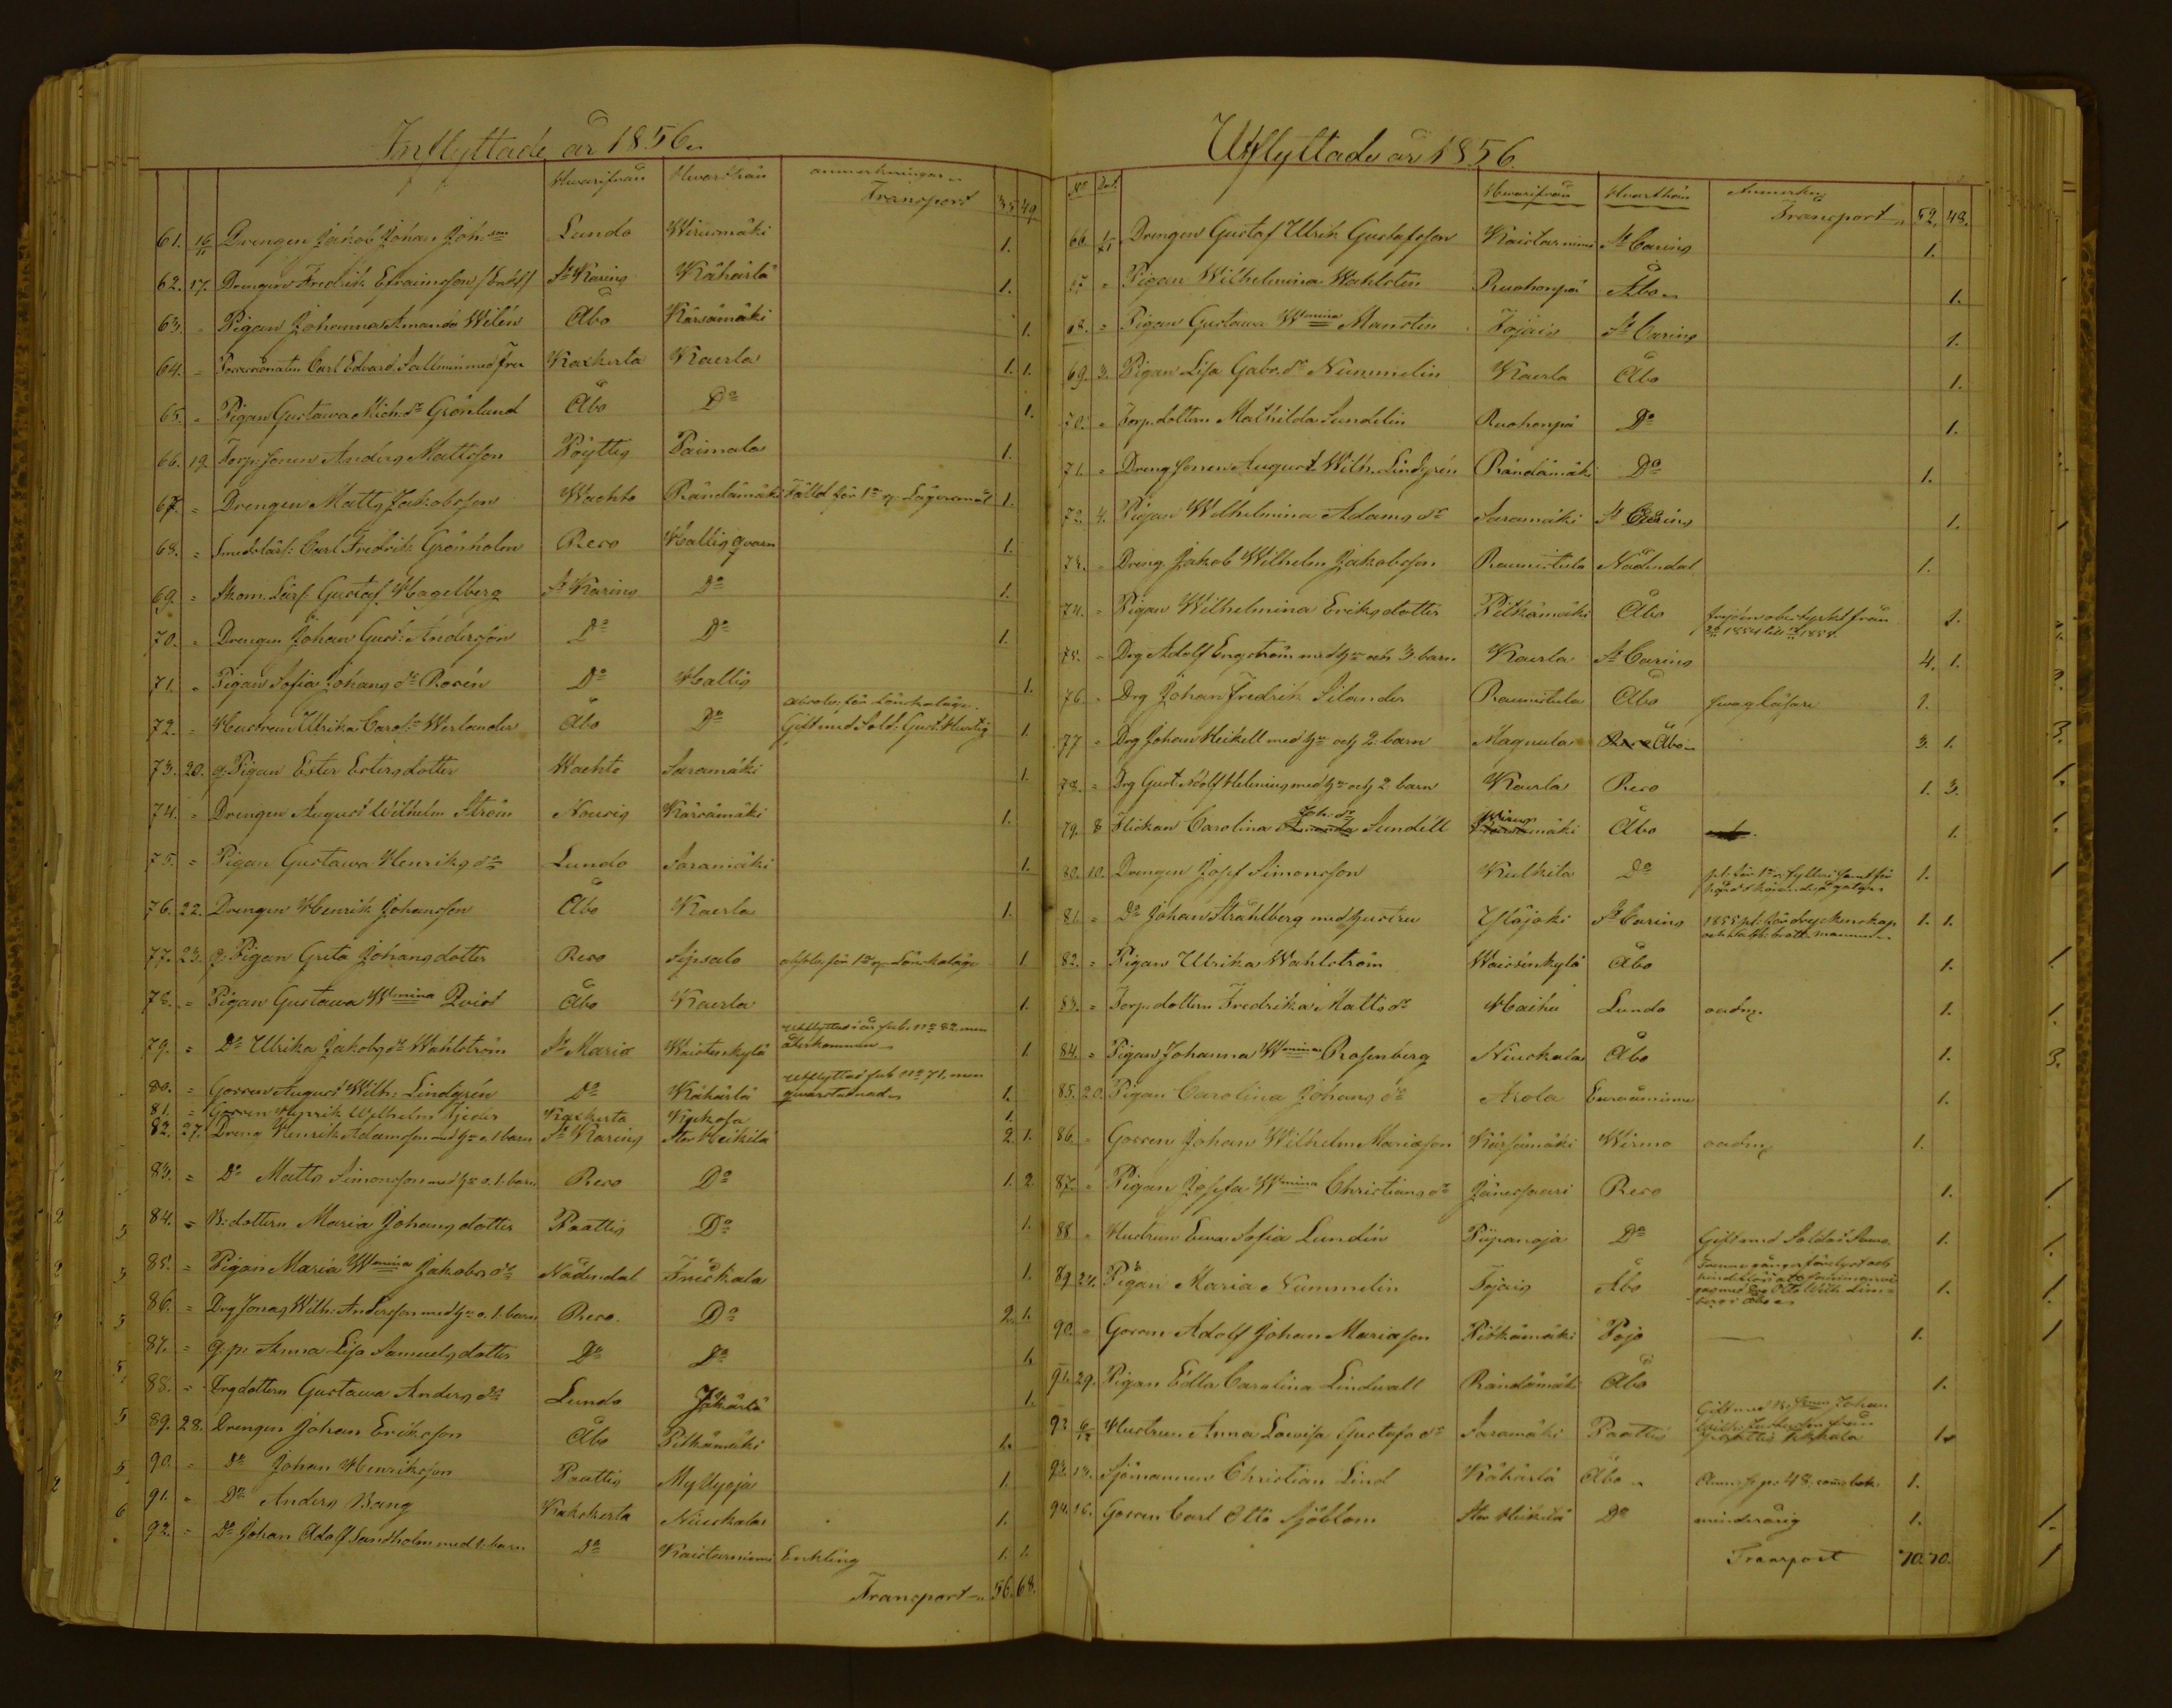 Inflyttade år 1856.
Hwarifrån Hwarthän anmärkningar
Transport 35 49
61. 16/11 Drengen Jakob Johan Joh:son Lundo Wirusmäki 1.
62. 17. Drengen Fredrik Efraimsson St Karins Kähärlä 1.
63. - Pigan Johanna Amanda Wilén Åbo Kärsämäki 1.
64. - Carl Edvard Sallmén med fru Kaxkerta Kaerla 1. 1.
65. - Pigan Gustawa Mich:dr Grönlund Åbo Do 1.
66. 19. Torp:sonen Anders Mattsson Pöyttis Paimala 1.
67. - Drengen Matts Jakobsson Wachto Rändämäki Fälld för 1a g. Lägersmål 1.
68. - Smedslärl: Carl Fredrik Grönholm Reso Hallis qvarn 1.
69. - Skom. Lärl: Gustaf Hagelberg St Karins Do 1.
70. - Drengen Johan Gust: Andersson Do Do 1.
71. - Pigan Sofia Johans dr Rosén Do Hallis 1.
72. - Hustrun Ulrika Carol: Werlander Åbo Do absolv: för lönskaläge. Gift med Sold: Gust: Hurtig 1.
73. 20. q. Pigan Ester Estersdotter Wachto Saramäki 1.
74. - Drengen August Wilhelm Ström Nousis Kärsämäki 1.
75. - Pigan Gustawa Henriks dr Lundo Saramäki 1.
76. 22. Drengen Henrik Johansson Åbo Kaerla 1.
77. 23. q: Pigan Greta Johansdotter Reso Ispsalo absolv. för 1a g. Lönskaläge 1
78. - Pigan Gustawa Wmina Qvist Åbo Kaerla 1.
79. - Do Ulrika Jakobs dr Wahlström St Maria Waistenkylä utflyttad i år sub. No 82. men återkommen 1.
80. - Gossen August Wilh: Lindgrén Do Kähärlä utflyttad sub No 71, men qwarstannade 1.
81. - Gossen Henrik Wilhelm Kaxkerta 1.
82. 27. Dreng Henrik Adamsson med hu o. 1 barn St Karins Stor Heikilä 2. 1.
83. - Do Matts Simonsson med hu o. 1. barn Reso Do 1. 2.
84. - B: dottern Maria Johansdotter Paattis Do 1.
85. - Pigan Maria Wmina Jakobs dr Nådendal Friskala 1.
86. - Drg Jonas Wilh: Andersson med hu o. 1. barn Reso. Do 2. 1.
87. - q. p. Anna Lisa Samuelsdotter Do Do 1.
88. - Drgdottern Gustawa Anders dr Lundo Jäkärlä 1.
89. 28. Drengen Johan Eriksson Åbo Pitkämäki 1.
90. - Do Johan Henriksson Paattis Myllyoja 1.
91. - Do Anders Bang Kakskerta Niuskala 1.
92. - Do Johan Adolf Sandholm med 1. barn Do Kaistarniemi Enkling 1. 1.
Transport 56. 68.
Utflyttade år 1856.
No Dat. Hwarifrån Hwarthän Anmerkng
Transport 52. 48.
66. Drengen Gustaf Ulrik Gustafsson Kaistarniemi St Carins 1.
67. - Pigan Wilhelmina Wahlstén Ruohonpä Åbo 1.
68. - Pigan Gustawa Wmina Manstén Tojais St Carins 1.
69. 3. Pigan Lisa Gabr.dr Nummelin Kaerla Åbo 1.
70. - Torp. dottern Mathilda Sundelin Ruohonpä Do 1.
71. - Drengsonen August Wilh. Lindgrén Rändämäki Do 1.
72. 4. Pigan Wilhelmina Adams dr Saramäki St Carins 1.
73. - Dreng. Jakob Wilhelm Jakobsson Raunistula Nådendal 1.
74. - Pigan Wilhelmina Eriksdotter Pitkämäki Åbo 1.
75. - Drg Adolf Engström med hu och 3 barn Kaerla St Carins 4. 1.
76. - Drg Johan Fredrik Silander Raunistula Åbo swag läsare 1.
77 - Drg Johan Heikell med hu och 2. barn Magnula Åbo 3. 1.
78. - Drg Gust. Adolf Helenius med hu och 2 barn Kaerla Reso 1. 3.
79. 8 Flickan Carolina Joh: dr Sundell Wirusmäki Åbo 1.
80. 10. Drengen Josef Simonsson Kulkila Do 1.
81. - Do Johan Stråhlberg med hustru Yläjoki St Carins 1855 pl: för dryckenskap 1. 1.
82. - Pigan Ulrika Wahlström Waistenkylä Åbo 1.
83. - Torp. dottern Fredrika Matts dr Haihu Lundo oadm. 1.
84. - Pigan Johanna Wmina Rosenberg Niuskala Åbo 1.
85. 20. Pigan Carolina Johans dr Arola Euraåminne 1.
86. - Gossen Johan Wilhelm Mariasson Kärsämäki Wirmo oadm. 1.
87. - Pigan Josefa Wmina Christians dr Jänessaari Reso 1.
88. - Hustrun Eva Sofia Lundén Piipanoja Do Gift med Soldat 1.
89. 24. Pigan Maria Nummelin Tojais Åbo 1.
90. - Gossen Adolf Johan Mariasson Pitkämäki Pojo — 1.
91. 29. Pigan Edla Carolina Lindwall Rändämäki Åbo 1.
92. 6/12 Hustrun Anna Lowisa Gustafs dr Saramäki Paattis Gift med B: Sonen Johan 1.
93. 13. Sjömannen Christian Lind Kähärlä Åbo 1.
94. 16. Gossen Carl Otto Sjöblom Stor Heikilä Do minderårig 1.
Transport 70. 70.